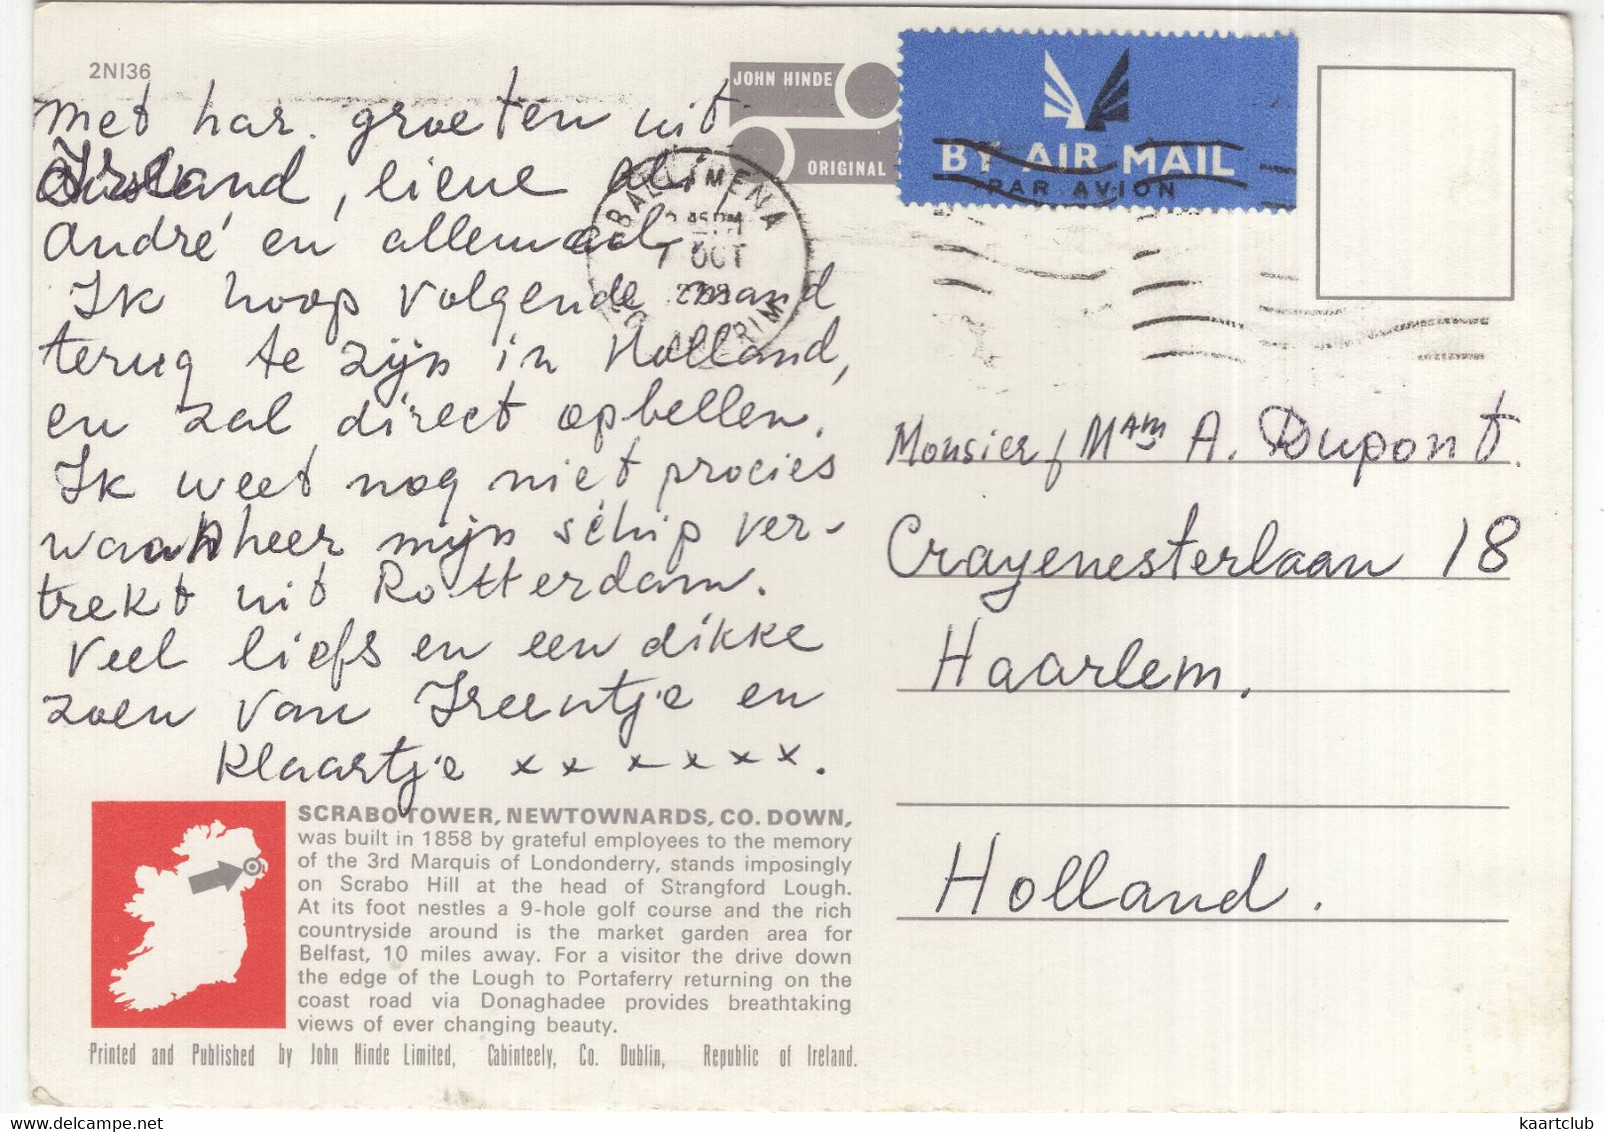 2NI36
JOHN HINDE
ORIGINAL
BY AIR MAIL
PAR AVION
BALLYMENA
7 OCT
Met har. groeten uit
Ierland, lieve Ali,
André en allemaal,
Ik hoop volgende maand
terug te zijn in Holland,
en zal direct opbellen.
Ik weet nog niet procies
waanheer mijn schip ver-
trekt uit Rotterdam.
Veel liefs en een dikke
zoen van Ireentje en
Klaartje x x x x x x x.
Monsier / Mam A. Dupont.
Crayenesterlaan 18
Haarlem.
Holland.
SCRABO TOWER, NEWTOWNARDS, CO. DOWN,
was built in 1858 by grateful employees to the memory
of the 3rd Marquis of Londonderry, stands imposingly
on Scrabo Hill at the head of Strangford Lough.
At its foot nestles a 9-hole golf course and the rich
countryside around is the market garden area for
Belfast, 10 miles away. For a visitor the drive down
the edge of the Lough to Portaferry returning on the
coast road via Donaghadee provides breathtaking
views of ever changing beauty.
Printed and Published by John Hinde Limited, Cabinteely, Co. Dublin, Republic of Ireland.
kaartclub